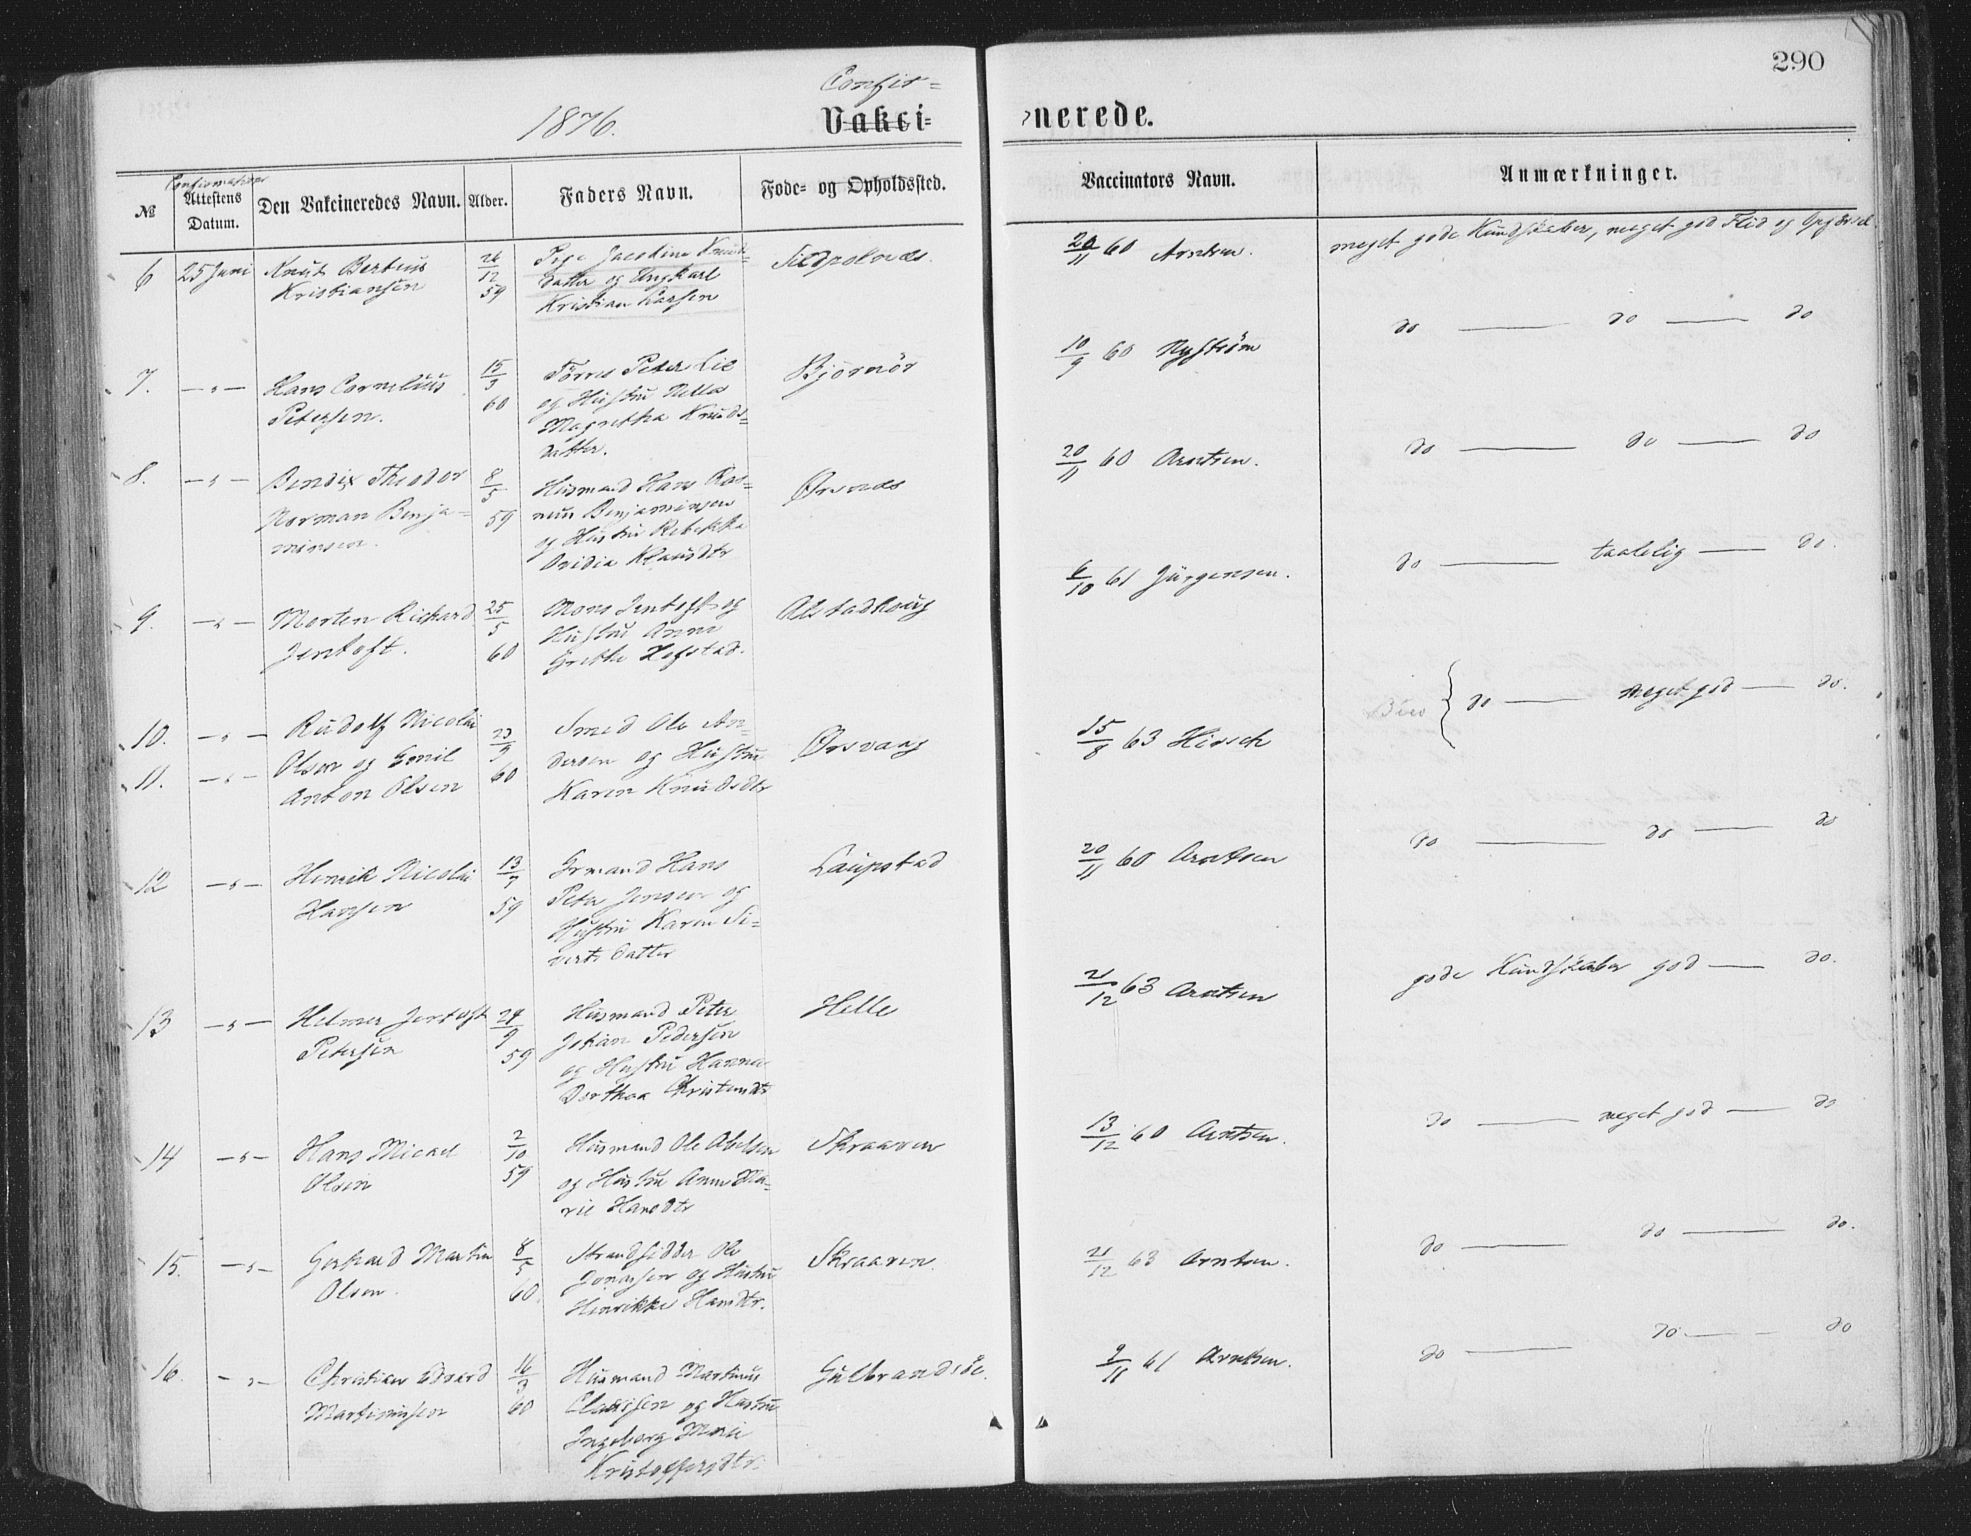 290
1876.
Confir=
Vakci=
nerede.
Confirmations
№
Attestens
Datum.
Den Vakcineredes Navn.
Alder.
Faders Navn.
Føde= og Opholdssted.
Vaccinators Navn.
Anmærkninger.
6 25 Juni Knut Berteus 26/12 Pige Jacobine Knuds- Sildpolnæs. 20/11 60 Arntsen. meget gode Kundskaber, meget god Flid og Opførsel
Kristiansen 59 datter og Ungkarl
Kristian Larsen
7. — " — Hans Cornelius 15/3 Törres Peter Lie Bjørnör 10/9 60 Nyström do — do — do
Petersen. 60 og Hustru
Magretha Knuds=
datter.
8. — " — Bendix Theodor 8/5 Husmand Hans Ras= Ørsnæs 20/11 60 Arntsen. do — do — do
Norman Benja= 59 mus Benjaminsen
minsen. og Hustru Rebekka
Ovidia Klausdtr
9. — " — Morten Richard 25/5 Mons Jentoft og Alstadhoug 6/10 61 Jürgensen. do — taalelig — do.
Jentoft. 60 Hustru Anne
Grethe Hofstad.
10. — " — Rudolf Nicolai 23/9 Smed Ole An= Ørsvaag 15/8 63 Hirsch do — meget god — do.
11. — " — Olsen og Emil 60 dersen og Hustru
Anton Olsen Karen Knudsdtr
12 — " — Henrik Nicolai 13/7 Grmand Hans Laupstad 20/11 60 Arntsen do — do — do
Hansen 59 Peter Jensen og
Hustru Karen Si=
verts Datter
13 — " — Helmer Jentoft 24/9 Husmand Peter Helle 21/12 63 Arntsen gode Kundskaber god — do.
Petersen 59 Johan Pedersen
og Hustru Hanna
Dorthea Christensdtr
14 — " — Hans Mickel 2/10 Husmand Ole Abelsen Skraaven 13/12 60 Arntsen. do — meget god — do
Olsen 59 og Hustru Anne Ma=
rie Hansdtr
15. — " — Gerhard Martin 8/5 Strandsidder Ole Skraaven. 21/12 63 Arntsen. do — do — do.
Olsen. 60. Jonassen og Hustru
Henrikke Hansdtr.
16. — " — Christian Edvard 16/3 Husmand Martinus Gulbrandsöe. 9/11 61 Arntsen. do — do — do
Martinusen 60 Claussen og Hustru
Ingeborg Marie
Kristoffersdtr.